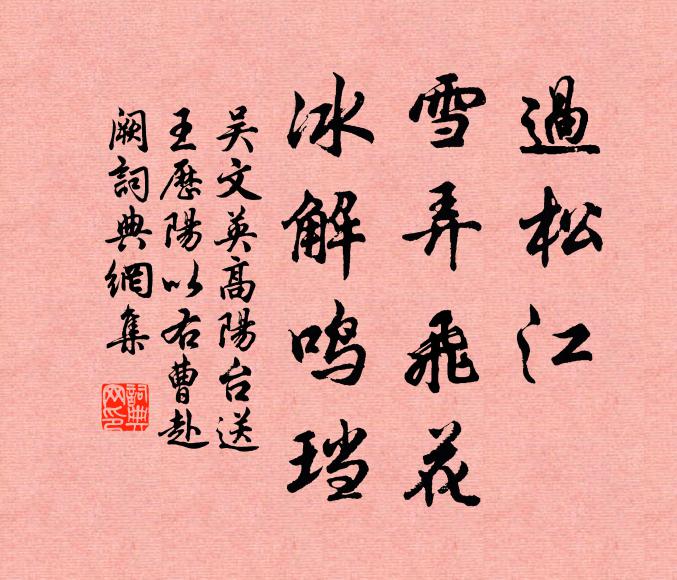 過松江
雪弄飛花
冰解鸣珰
吴文英高陽台送
王歷陽以右曹赴
阙詞典網集
詞典网印